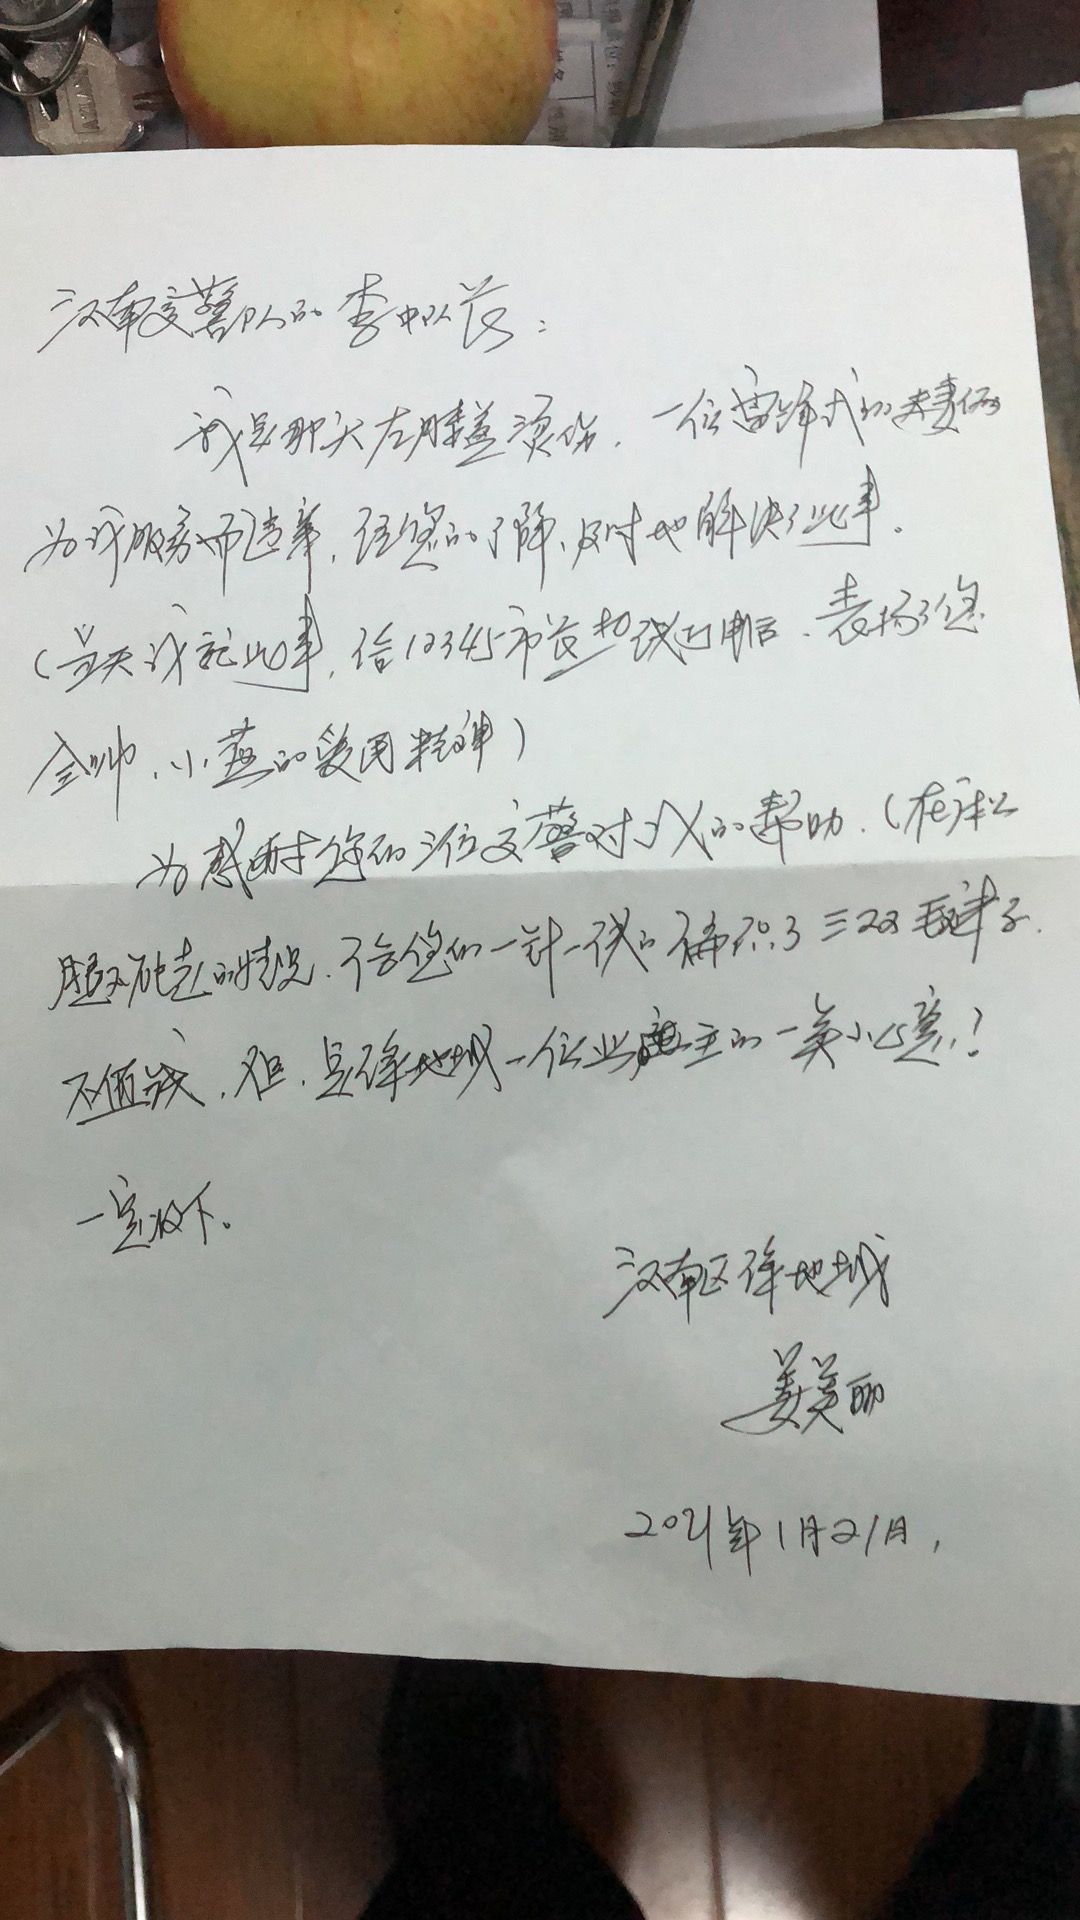 汉南交警队的李中队长：
我是那天左膝盖烫伤，一位雷锋式的夫妻俩
为我服务而违章，经您的了解、及时地解决了此事。
(当天我就此事，给12345市长热线打电话，表扬了您
全帅、小燕的爱民精神)
为感谢您们三位交警对我的帮助，(在床上
腿不能走的情况，给您们一针一线的编织了三双毛鞋子，
不值钱，但，是绿地城一位业主的一点小心意！
一定收下。
汉南区绿地城
姜美丽
2021年1月21日，